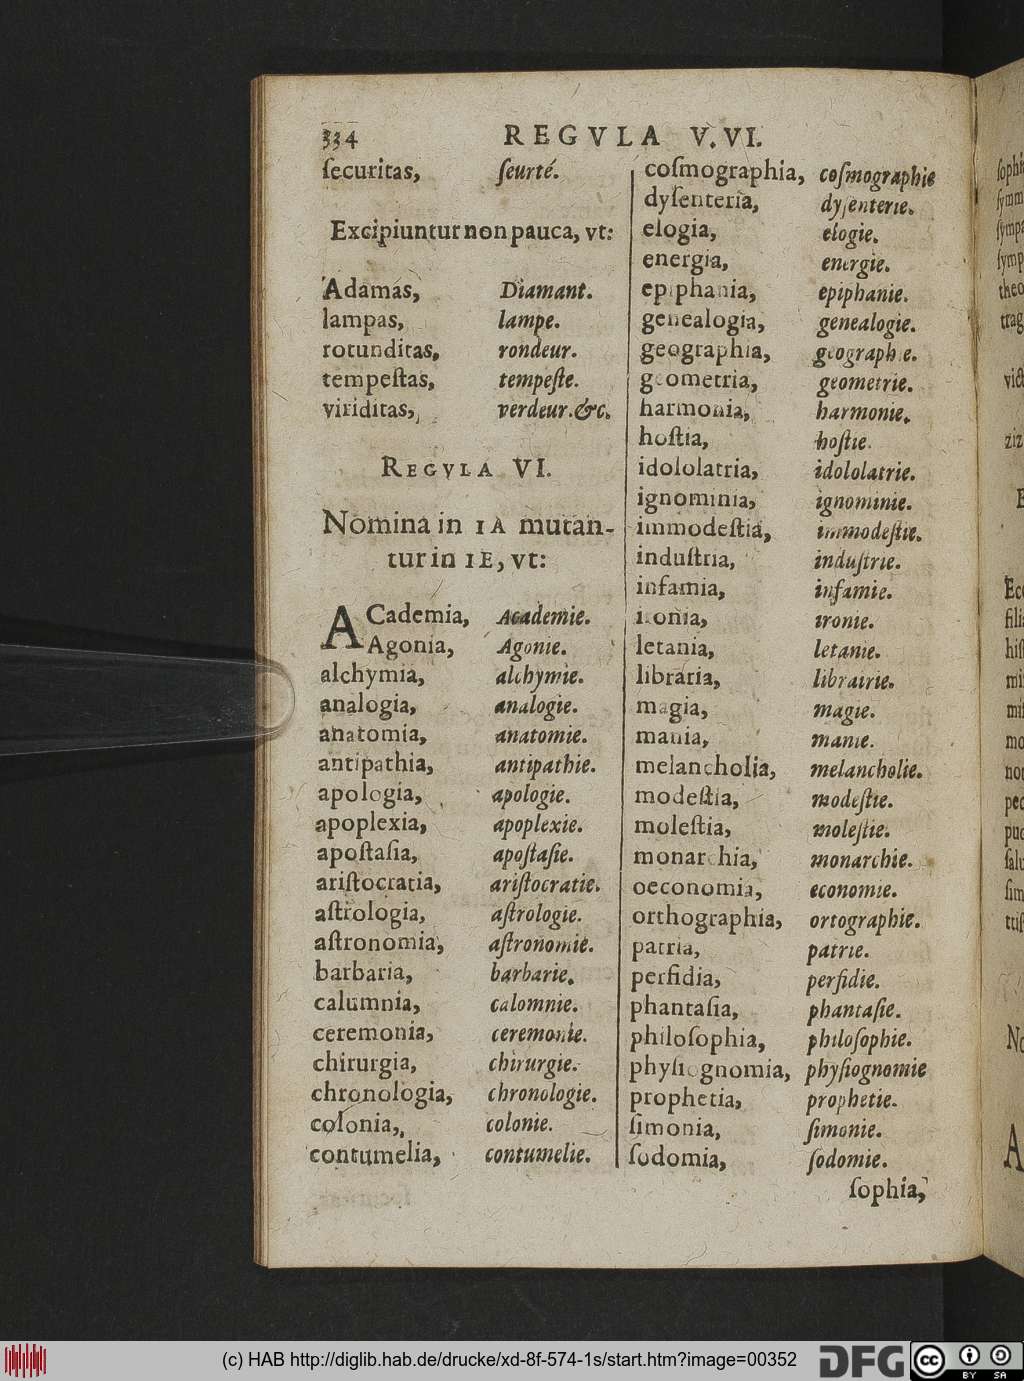 334 REGVLA V. VI.
ſecuritas, ſeurté.
Excipiuntur non pauca, vt:
Adamas, Diamant.
lampas, lampe.
rotunditas, rondeur.
tempeſtas, tempeſte.
viriditas, verdeur. &c.
REGVLA VI.
Nomina in IA mutan-
tur in IE, vt:
ACademia, Academie.
Agonia, Agonie.
alchymia, alchymie.
analogia, analogie.
anatomia, anatomie.
antipathia, antipathie.
apologia, apologie.
apoplexia, apoplexie.
apoſtaſia, apoſtaſie.
ariſtocratia, ariſtocratie.
aſtrologia, aſtrologie.
aſtronomia, aſtronomie.
barbaria, barbarie.
calumnia, calomnie.
ceremonia, ceremonie.
chirurgia, chirurgie.
chronologia, chronologie.
colonia, colonie.
contumelia, contumelie.
coſmographia, coſmographie
dyſenteria, dyſenterie.
elogia, elogie.
energia, energie.
epiphania, epiphanie.
genealogia, genealogie.
geographia, geographie.
geometria, geometrie.
harmonia, harmonie.
hoſtia, hoſtie.
idololatria, idololatrie.
ignominia, ignominie.
immodeſtia, immodeſtie.
induſtria, induſtrie.
infamia, infamie.
ironia, ironie.
letania, letanie.
libraria, librairie.
magia, magie.
mania, manie.
melancholia, melancholie.
modeſtia, modeſtie.
moleſtia, moleſtie.
monarchia, monarchie.
oeconomia, economie.
orthographia, ortographie.
patria, patrie.
perfidia, perfidie.
phantaſia, phantaſie.
philoſophia, philoſophie.
phyſiognomia, phyſiognomie
prophetia, prophetie.
ſimonia, ſimonie.
ſodomia, ſodomie.
ſophia,
(c) HAB http://diglib.hab.de/drucke/xd-8f-574-1s/start.htm?image=00352
DFG
cc BY SA